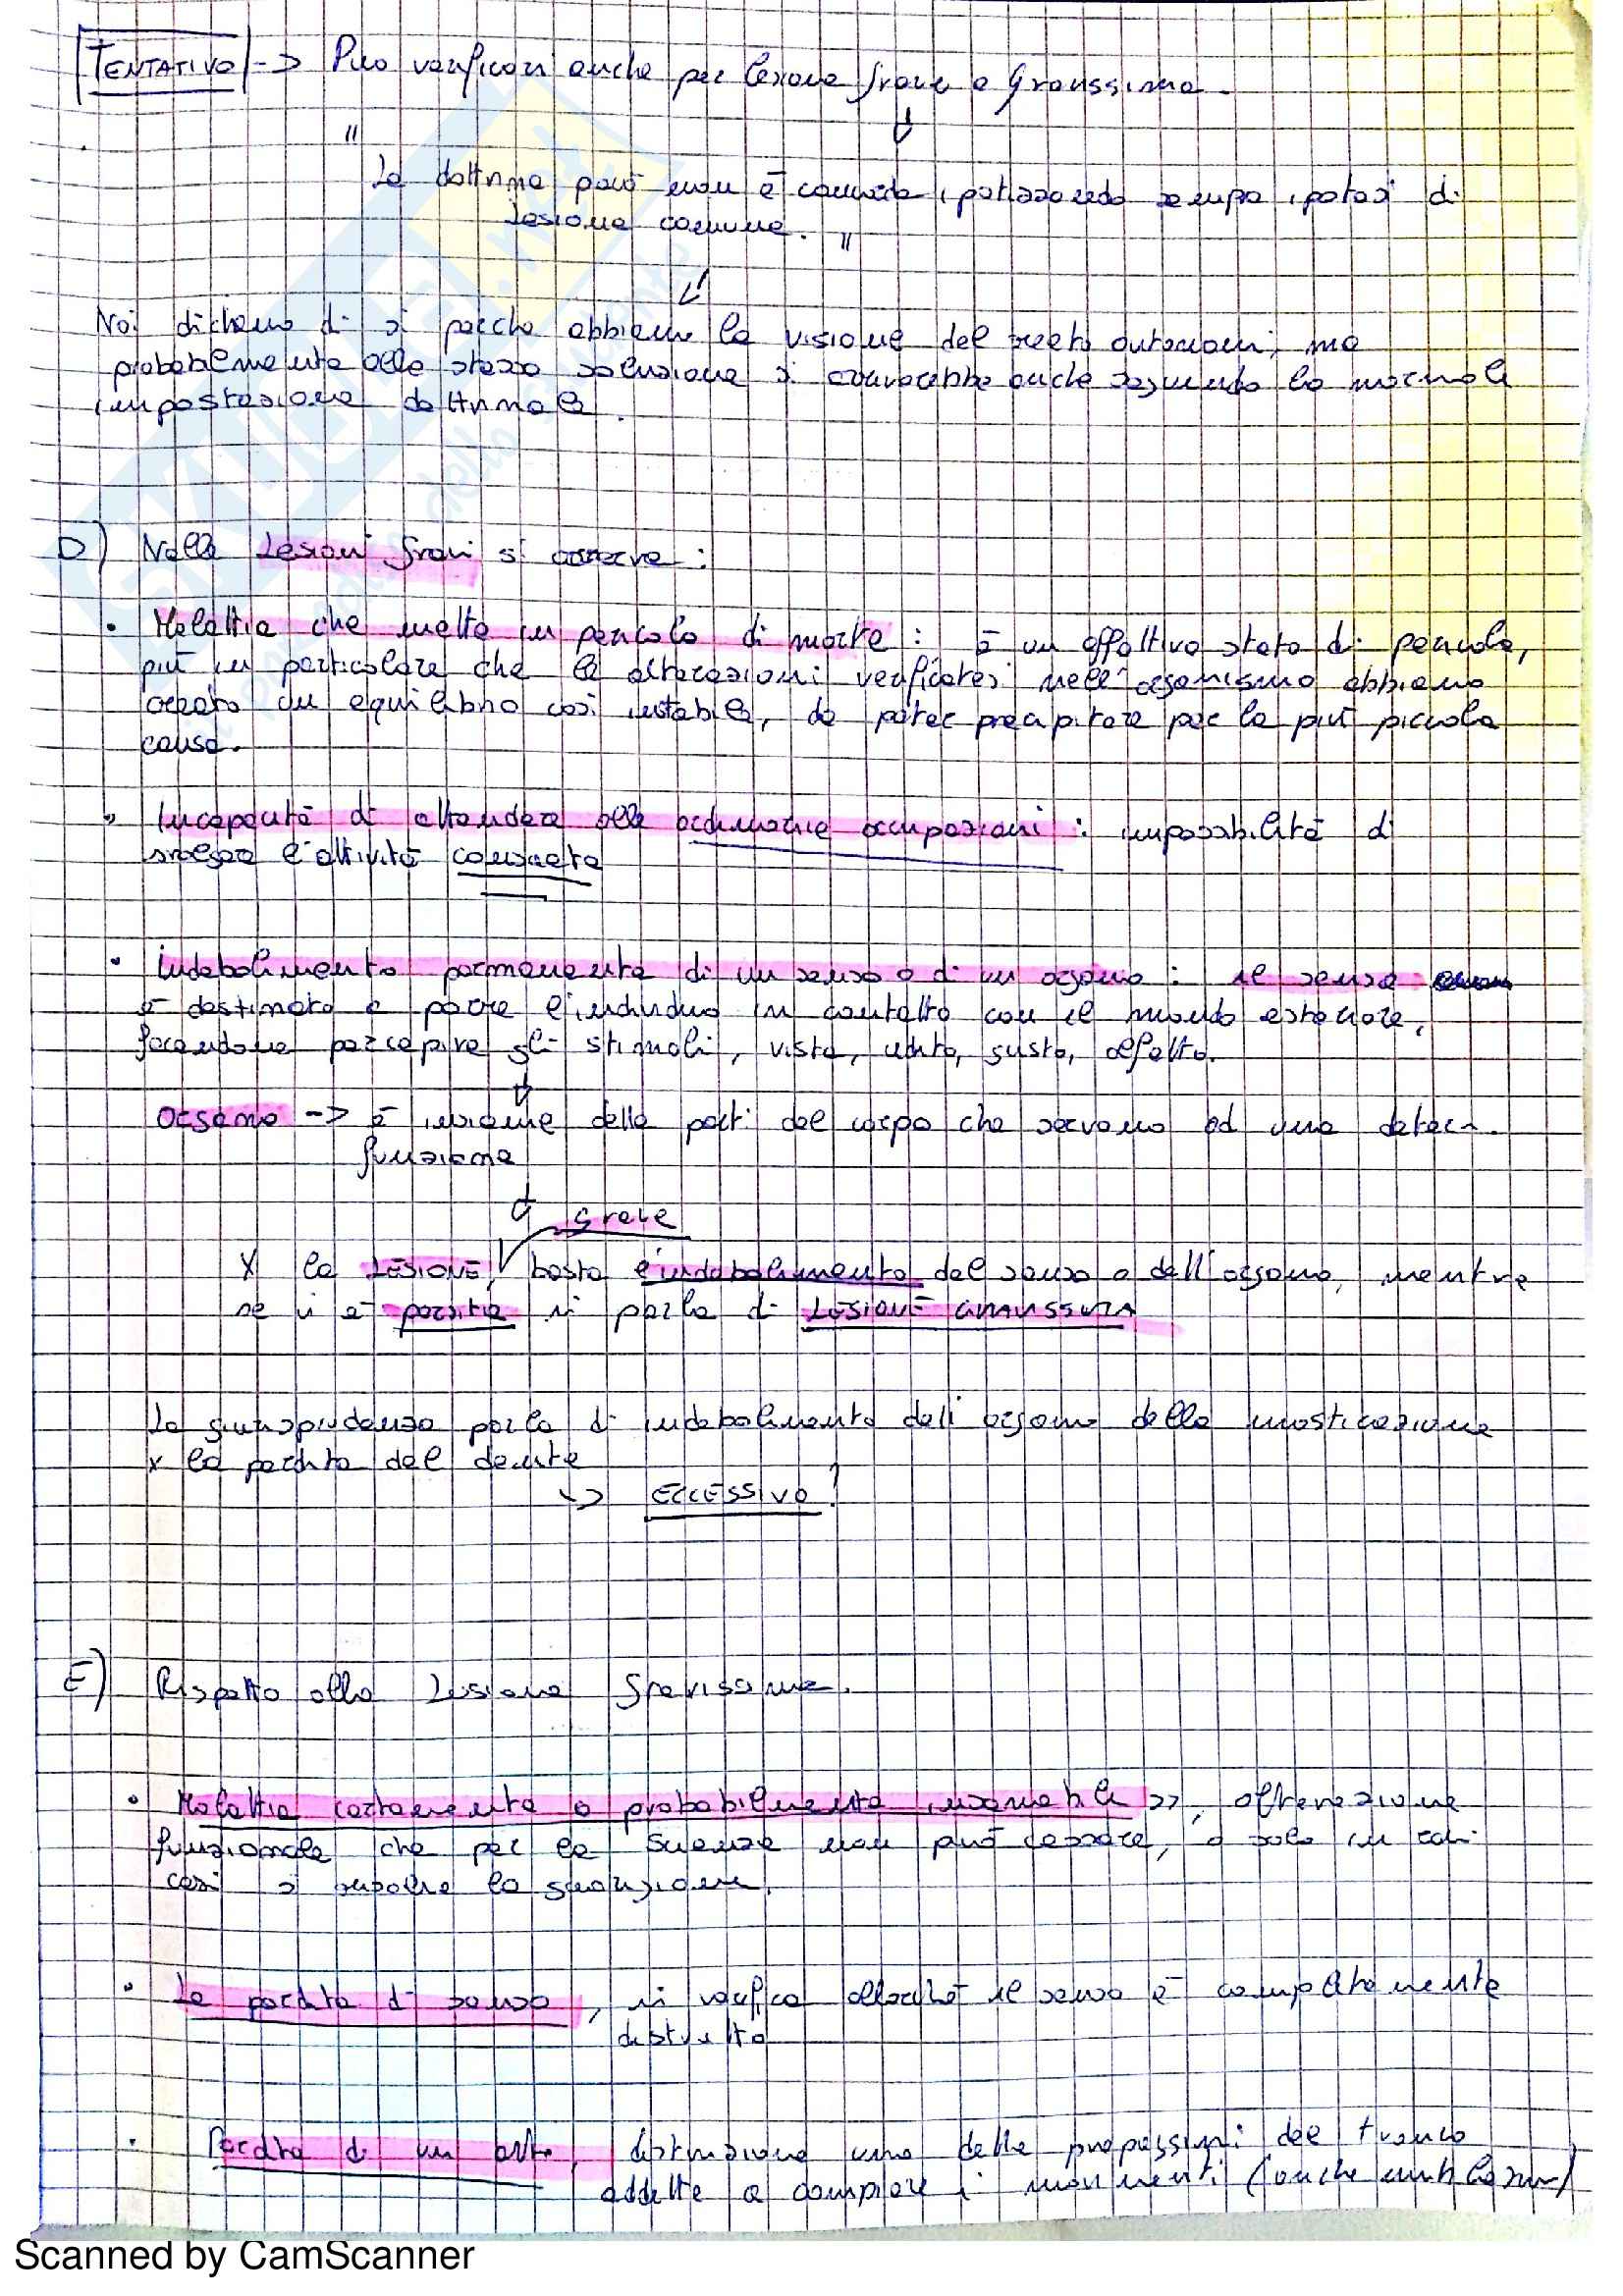 TENTATIVO -> Può verificarsi anche per lesione grave o Gravissima.
"
La dottrina però non è concorde ipotizzando sempre ipotesi di
lesione comune. "
Noi diciamo di sì perché abbiamo la visione del reato autonomo, ma
probabilmente alla stessa soluzione si arriverebbe anche seguendo la normale
impostazione dottrinale.
D) Nelle Lesioni gravi si osserva :
• Malattia che mette in pericolo di morte : è un effettivo stato di pericolo,
più in particolare che le alterazioni verificatesi nell'organismo abbiano
creato un equilibrio così instabile, da poter precipitare per la più piccola
causa.
• Incapacità di attendere alle ordinarie occupazioni : impossibilità di
svolgere l'attività consueta
• Indebolimento permanente di un senso o di un organo : il senso
è destinato a porre l'individuo in contatto con il mondo esteriore,
facendone percepire gli stimoli, vista, udito, gusto, olfatto.
Organo -> è insieme delle parti del corpo che servono ad una determ.
funzione
grave
X la LESIONE, basta l'indebolimento del senso o dell'organo, mentre
se vi è perdita si parla di LESIONE GRAVISSIMA
La giurisprudenza parla di indebolimento dell'organo della masticazione
x la perdita del dente
-> ECCESSIVO!
E) Rispetto alla Lesione gravissima.
• Malattia certamente o probabilmente insanabile >>, alterazione
funzionale che per la scienza non può cessare, o solo in rari
casi si risolve la guarigione.
• La perdita di senso, si verifica allorché il senso è completamente
distrutto
• Perdita di un arto, distruzione una delle propaggini del tronco
addette a compiere i movimenti (anche
Scanned by CamScanner